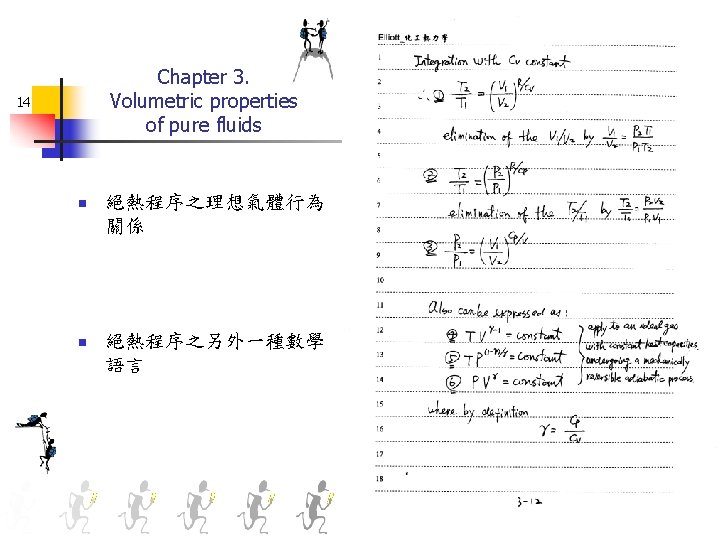 Chapter 3.
14
Volumetric properties
of pure fluids
絕熱程序之理想氣體行為
關係
絕熱程序之另外一種數學
語言
Elliott_化工熱力學
1
Integration with Cv constant
2
∴ ① T2/T1 = (V1/V2)^R/Cv
3
4
elimination of the V1/V2 by V1/V2 = P2T1/P1T2
5
6
② T2/T1 = (P2/P1)^R/Cp
7
elimination of the T2/T1 by T2/T1 = P2V2/P1V1
8
9
③ P2/P1 = (V1/V2)^Cp/Cv
10
11
Also can be expressed as:
12
④ TV^γ-1 = constant
13
⑤ TP^(1-γ)/γ = constant
14
⑥ PV^γ = constant
apply to an ideal gas
with constant heat capacities
undergoing a mechanically
reversible adiabatic process.
15
where by definition
16
γ = Cp/Cv
17
18
3-12